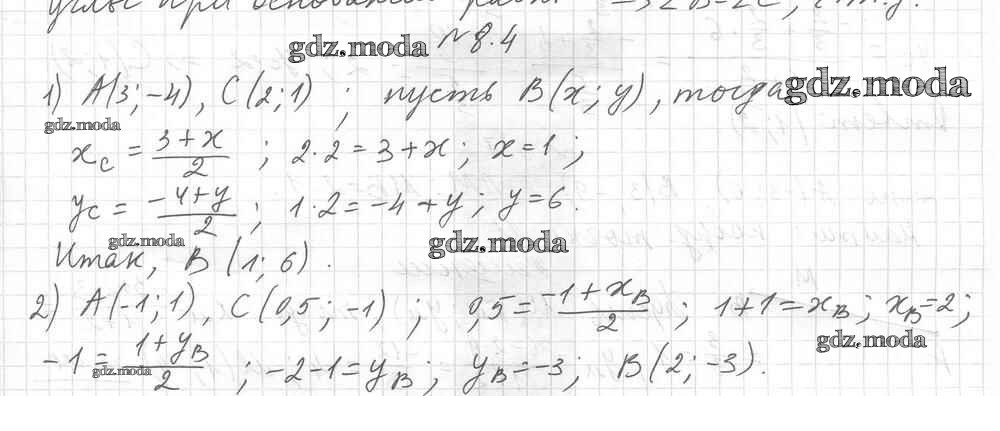 углы при основании
№ 8.4
gdz.moda
1) A(3;-4), C(2;1) ; пусть B(x; y), тогда gdz.moda
gdz.moda
x_C = \frac{3+x}{2} ; 2·2=3+x; x=1 ;
y_C = \frac{-4+y}{2} ; 1·2=-4+y; y=6.
gdz.moda gdz.moda
Итак, B (1; 6) .
2) A(-1; 1), C(0,5; -1) ; 0,5=\frac{-1+x_B}{2} ; 1+1=x_B; x_B=2;
gdz.moda
-1=\frac{1+y_B}{2} ; -2-1=y_B; y_B=-3; B(2; -3).
gdz.moda